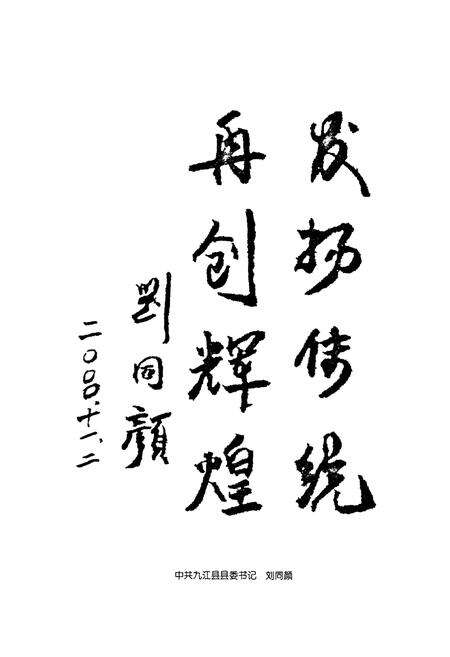 发扬传统
再创辉煌
劉同顔
二〇〇〇.十一.二
中共九江县县委书记　刘同颜